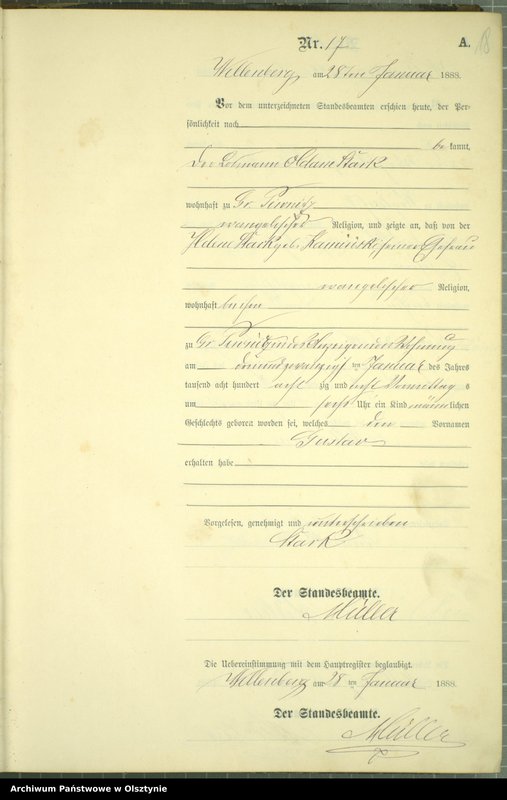 Nr. 17
A.
18
am 28ten Januar 1888.
Vor dem unterzeichneten Standesbeamten erschien heute, der Per-
sönlichkeit nach
be kannt,
Stark
wohnhaft zu Gr.
evangelischer Religion, und zeigte an, daß von der
Stark geb. seiner Ehefrau
evangelischer Religion,
wohnhaft bei ihm
zu Gr. in der Wohnung
am dreiundzwanzigsten Januar des Jahres
tausend acht hundert acht zig und acht Vormittag s
um sechs Uhr ein Kind männlichen
Geschlechts geboren worden sei, welches den Vornamen
Gustav
erhalten habe
Vorgelesen, genehmigt und unterschrieben
Stark
Der Standesbeamte.
Müller
Die Uebereinstimmung mit dem Hauptregister beglaubigt.
am 28 ten Januar 1888.
Der Standesbeamte.
Müller
Archiwum Państwowe w Olsztynie